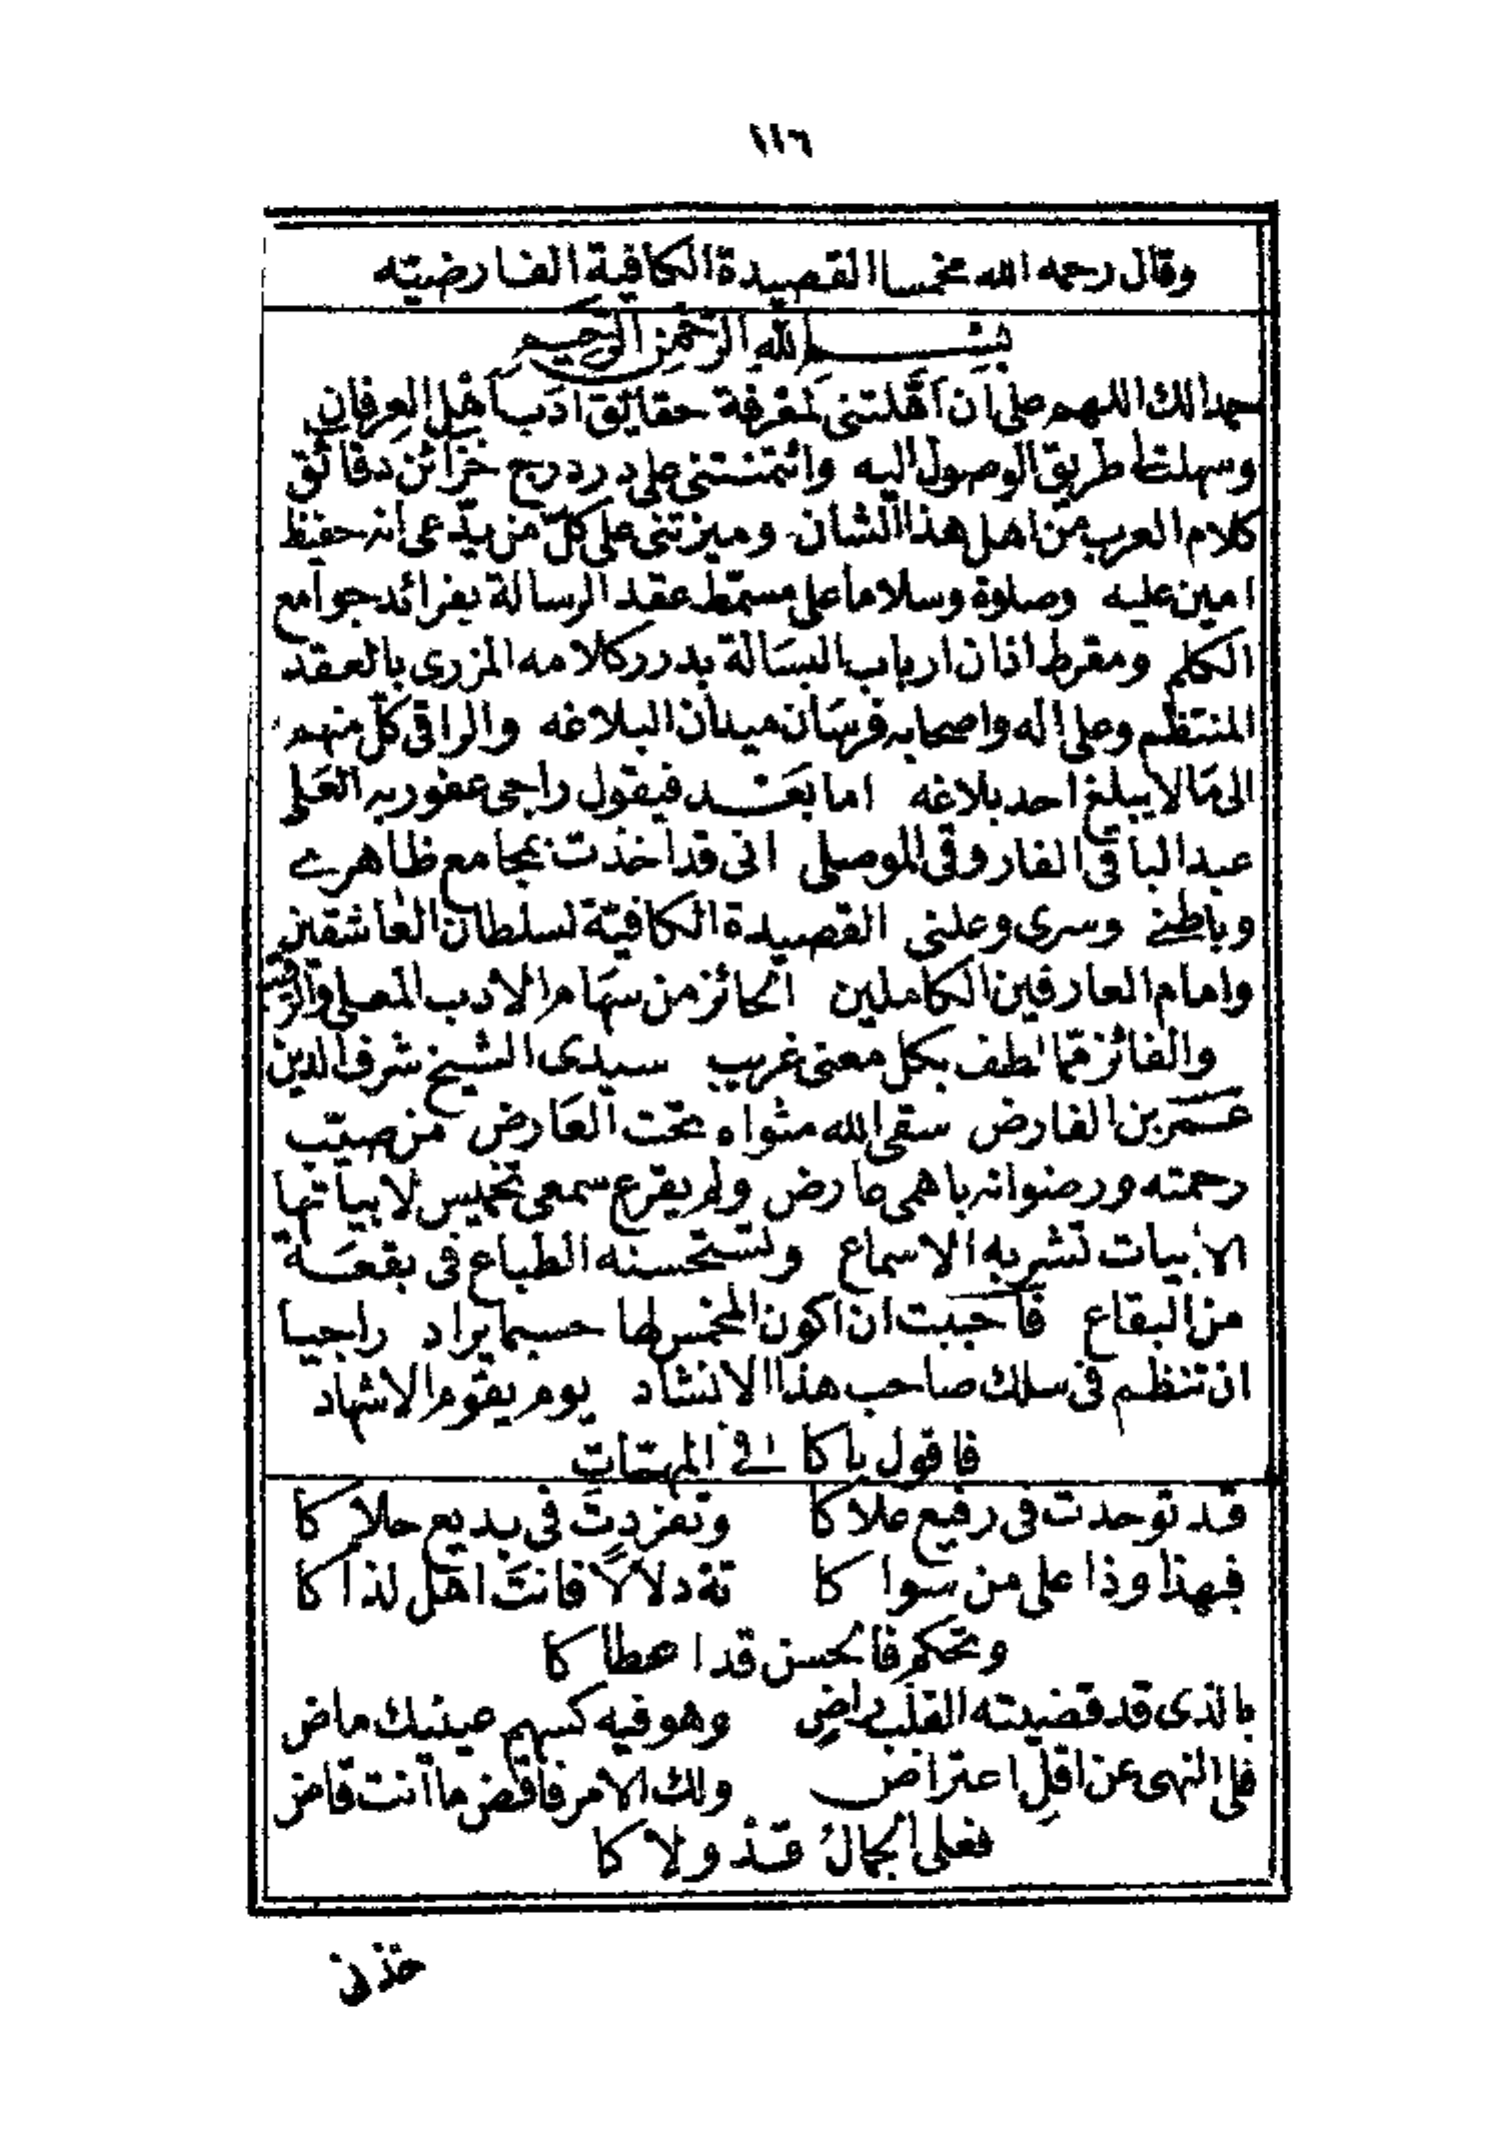 ١١٦
وقال رحمه الله مخمسا القصيدة الكافية الفارضيته
بسم الله الرحمن الرحيم
حمدا لك اللهم على أن أهّلتنى لمعرفة حقايق ادب أهل العرفان
وسهلت لى طريق الوصول اليه وائتمنتنى على درر درج خزائن دقائق
كلام العرب من اهل هذا الشان وميزتنى على كلّ من يدّعى انه حفيظ
امين عليه وصلوة وسلاما على مسمّط عقد الرسالة بفرائد جوامع
الكلم ومقرط اذان ارباب البسالة بدرر كلامه المزرى بالعقد
المنتظم وعلى اله واصحابه فرسان ميدان البلاغه والراقى كلّ منهم
الى مالا يبلغ احد بلاغه اما بعد فيقول راجى عفو ربه العلى
عبد الباقى الفاروقى الموصلى انى قد اخذت بمجامع ظاهرے
وباطنے وسرى وعلنى القصيدة الكافيّة لسلطان العاشقين
وامام العارفين الكاملين الحائز من سهام الادب المعلى والرقيب
والفائز ممّا لطف بكل معنى غريب سيدى الشيخ شرف الدين
عمر بن الفارض سقى الله مثواه تحت العارض من صيّب
رحمته ورضوانه باهمى عارض ولم يقرع سمعى تخميس لابياتها
الابيات تشربه الاسماع وتستحسنه الطباع فى بقعة
من البقاع فأحببت ان اكون المخمس لها حسبما يراد راجيا
ان تنظم فى سلك صاحب هذا الانشاد يوم يقوم الاشهاد
فاقول يا كافى المهمّات
قد توحدت فى رفيع علاكا وتفردت فى بديع حلاكا
فبهذا وذا على من سواكا ته دلالًا فانت اهل لذاكا
وتحكم فالحسن قد اعطاكا
بالذى قد قضيته القلب راضِ وهو فيه كسهم عينيك ماض
فلى النهى عن اقلِ اعتراض ولك الامر فاقض ما أنت قاض
فعلى الجمالُ قد ولاكا
خذنى